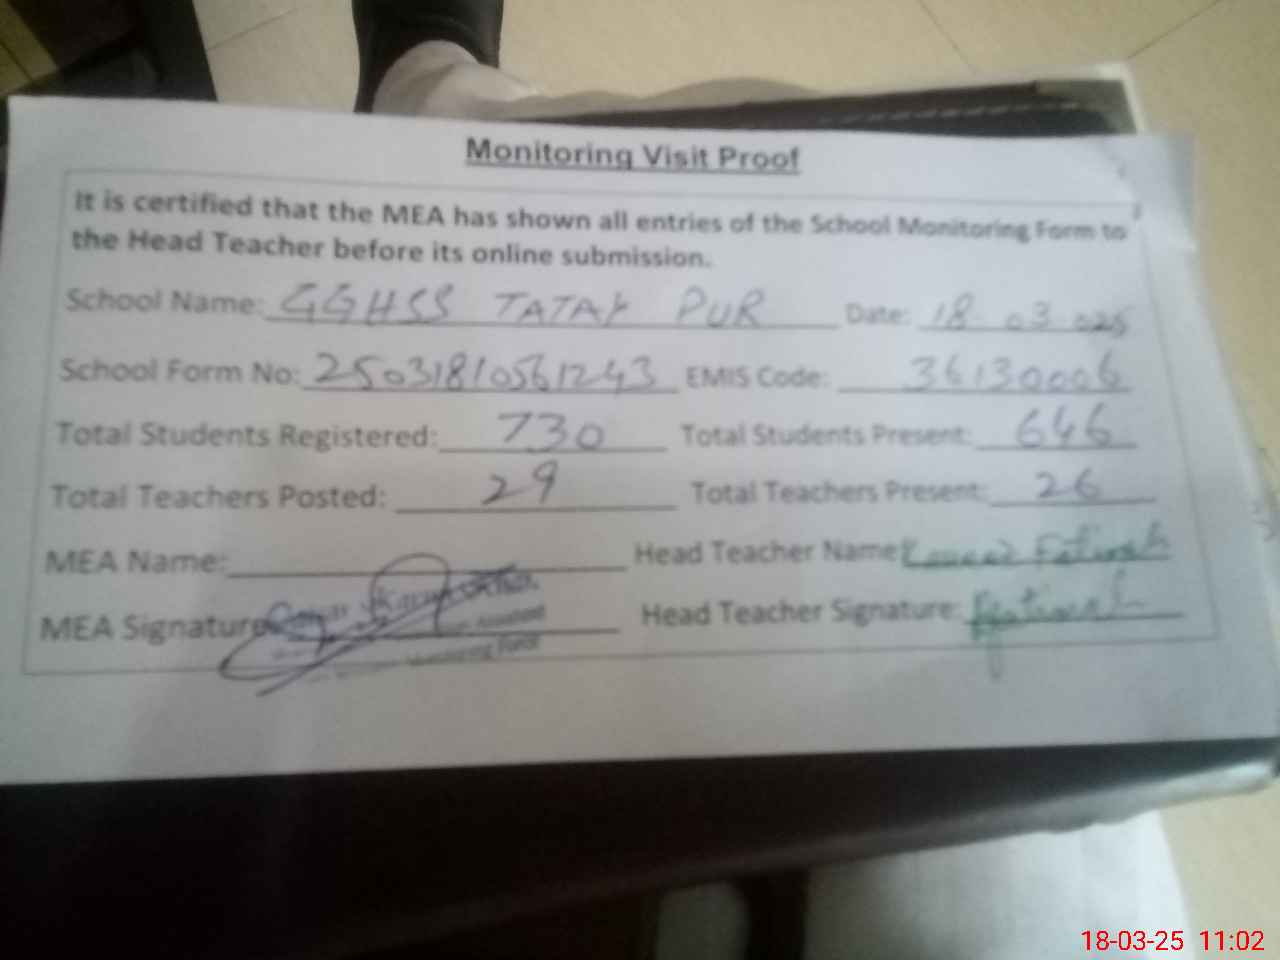 Monitoring Visit Proof
It is certified that the MEA has shown all entries of the School Monitoring Form to
the Head Teacher before its online submission.
School Name: GGHSS TATAY PUR Date: 18 03 025
School Form No: 25031810561243 EMIS Code: 36130006
Total Students Registered: 730 Total Students Present: 646
Total Teachers Posted: 29 Total Teachers Present: 26
MEA Name: Head Teacher Name: Fatimah
MEA Signature Head Teacher Signature:
Monitoring Force
18-03-25 11:02